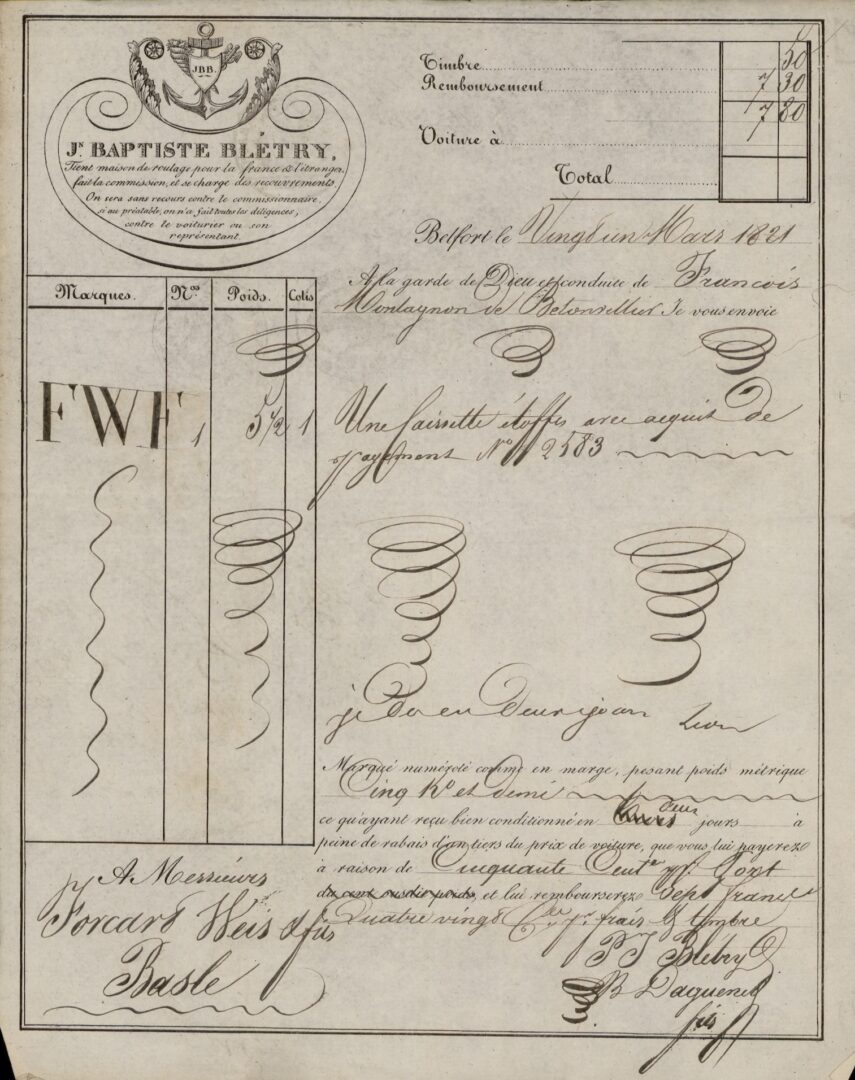 JBB.
Jn. BAPTISTE BLÉTRY,
Tient maison de roulage pour la france & l'étranger,
fait la commission, et se charge des recouvrements.
On sera sans recours contre le commissionnaire,
si au préalable, on n'a fait toutes les diligences,
contre le voiturier ou son
représentant.
Timbre 50
Remboursement 7 30
7 80
Voiture à
Total
Belfort le Vingt un Mars 1821
A la garde de Dieu et conduite de Francois
Montagnon de Je vous envoie
Marques. Nos. Poids. Colis
FWF 1 5 1/2 1
Une Caissette étoffes avec acquit de
payement No 2583
je en
Marqué numéroté comme en marge, pesant poids métrique
Cinq Ko et demi
ce qu'ayant reçu bien conditionné en deux jours à
peine de rabais d'un tiers du prix de voiture, que vous lui payerez
à raison de Cinquante Cent. Port
du cent susdit poids, et lui rembourserez Sept francs
Quatre vingt Cs. pr. frais & timbre
PJ Blétry
B Daguenet
fils
A Messieurs
Forcart Weis & fils
Basle